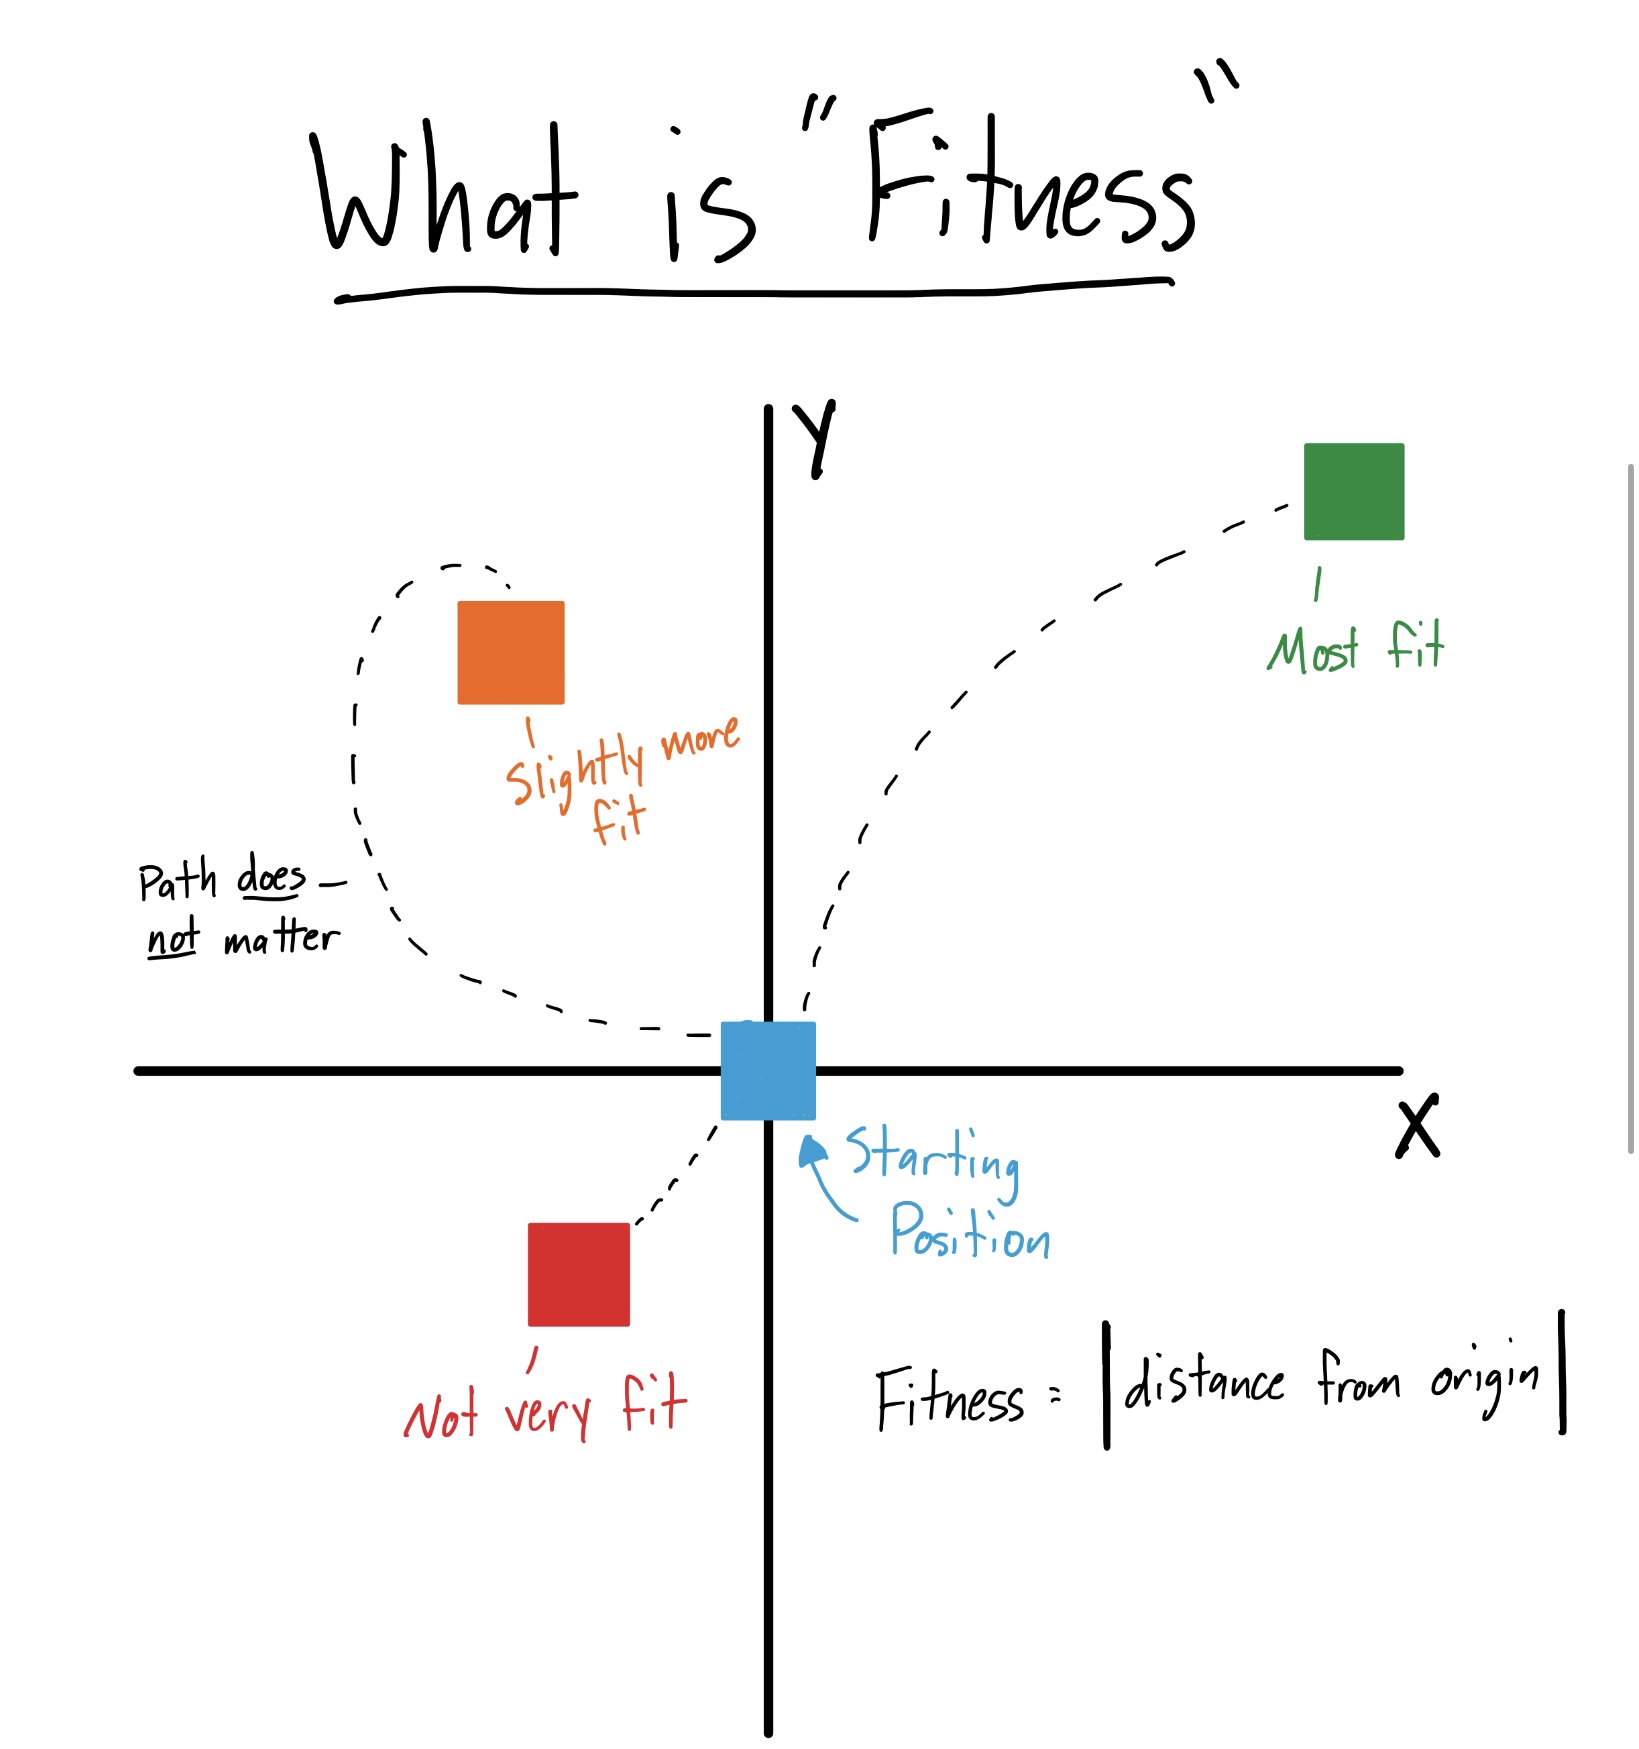 What is "Fitness"
Y
Most fit
Slightly more
fit
Path does
not matter
X
Starting
Position
Not very fit
Fitness = |distance from origin|